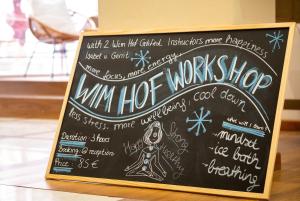 with 2 Wim Hof Certified Instructors
Isabel & Gerrit
more happiness
more focus, more energy,
WIM HOF WORKSHOP
less stress, more wellbeing, cool down
what will I learn?
Duration: 3 hours
Booking: @ reception
Price: 85 €
Happy
strong
healthy
- mindset
- ice bath
- breathing